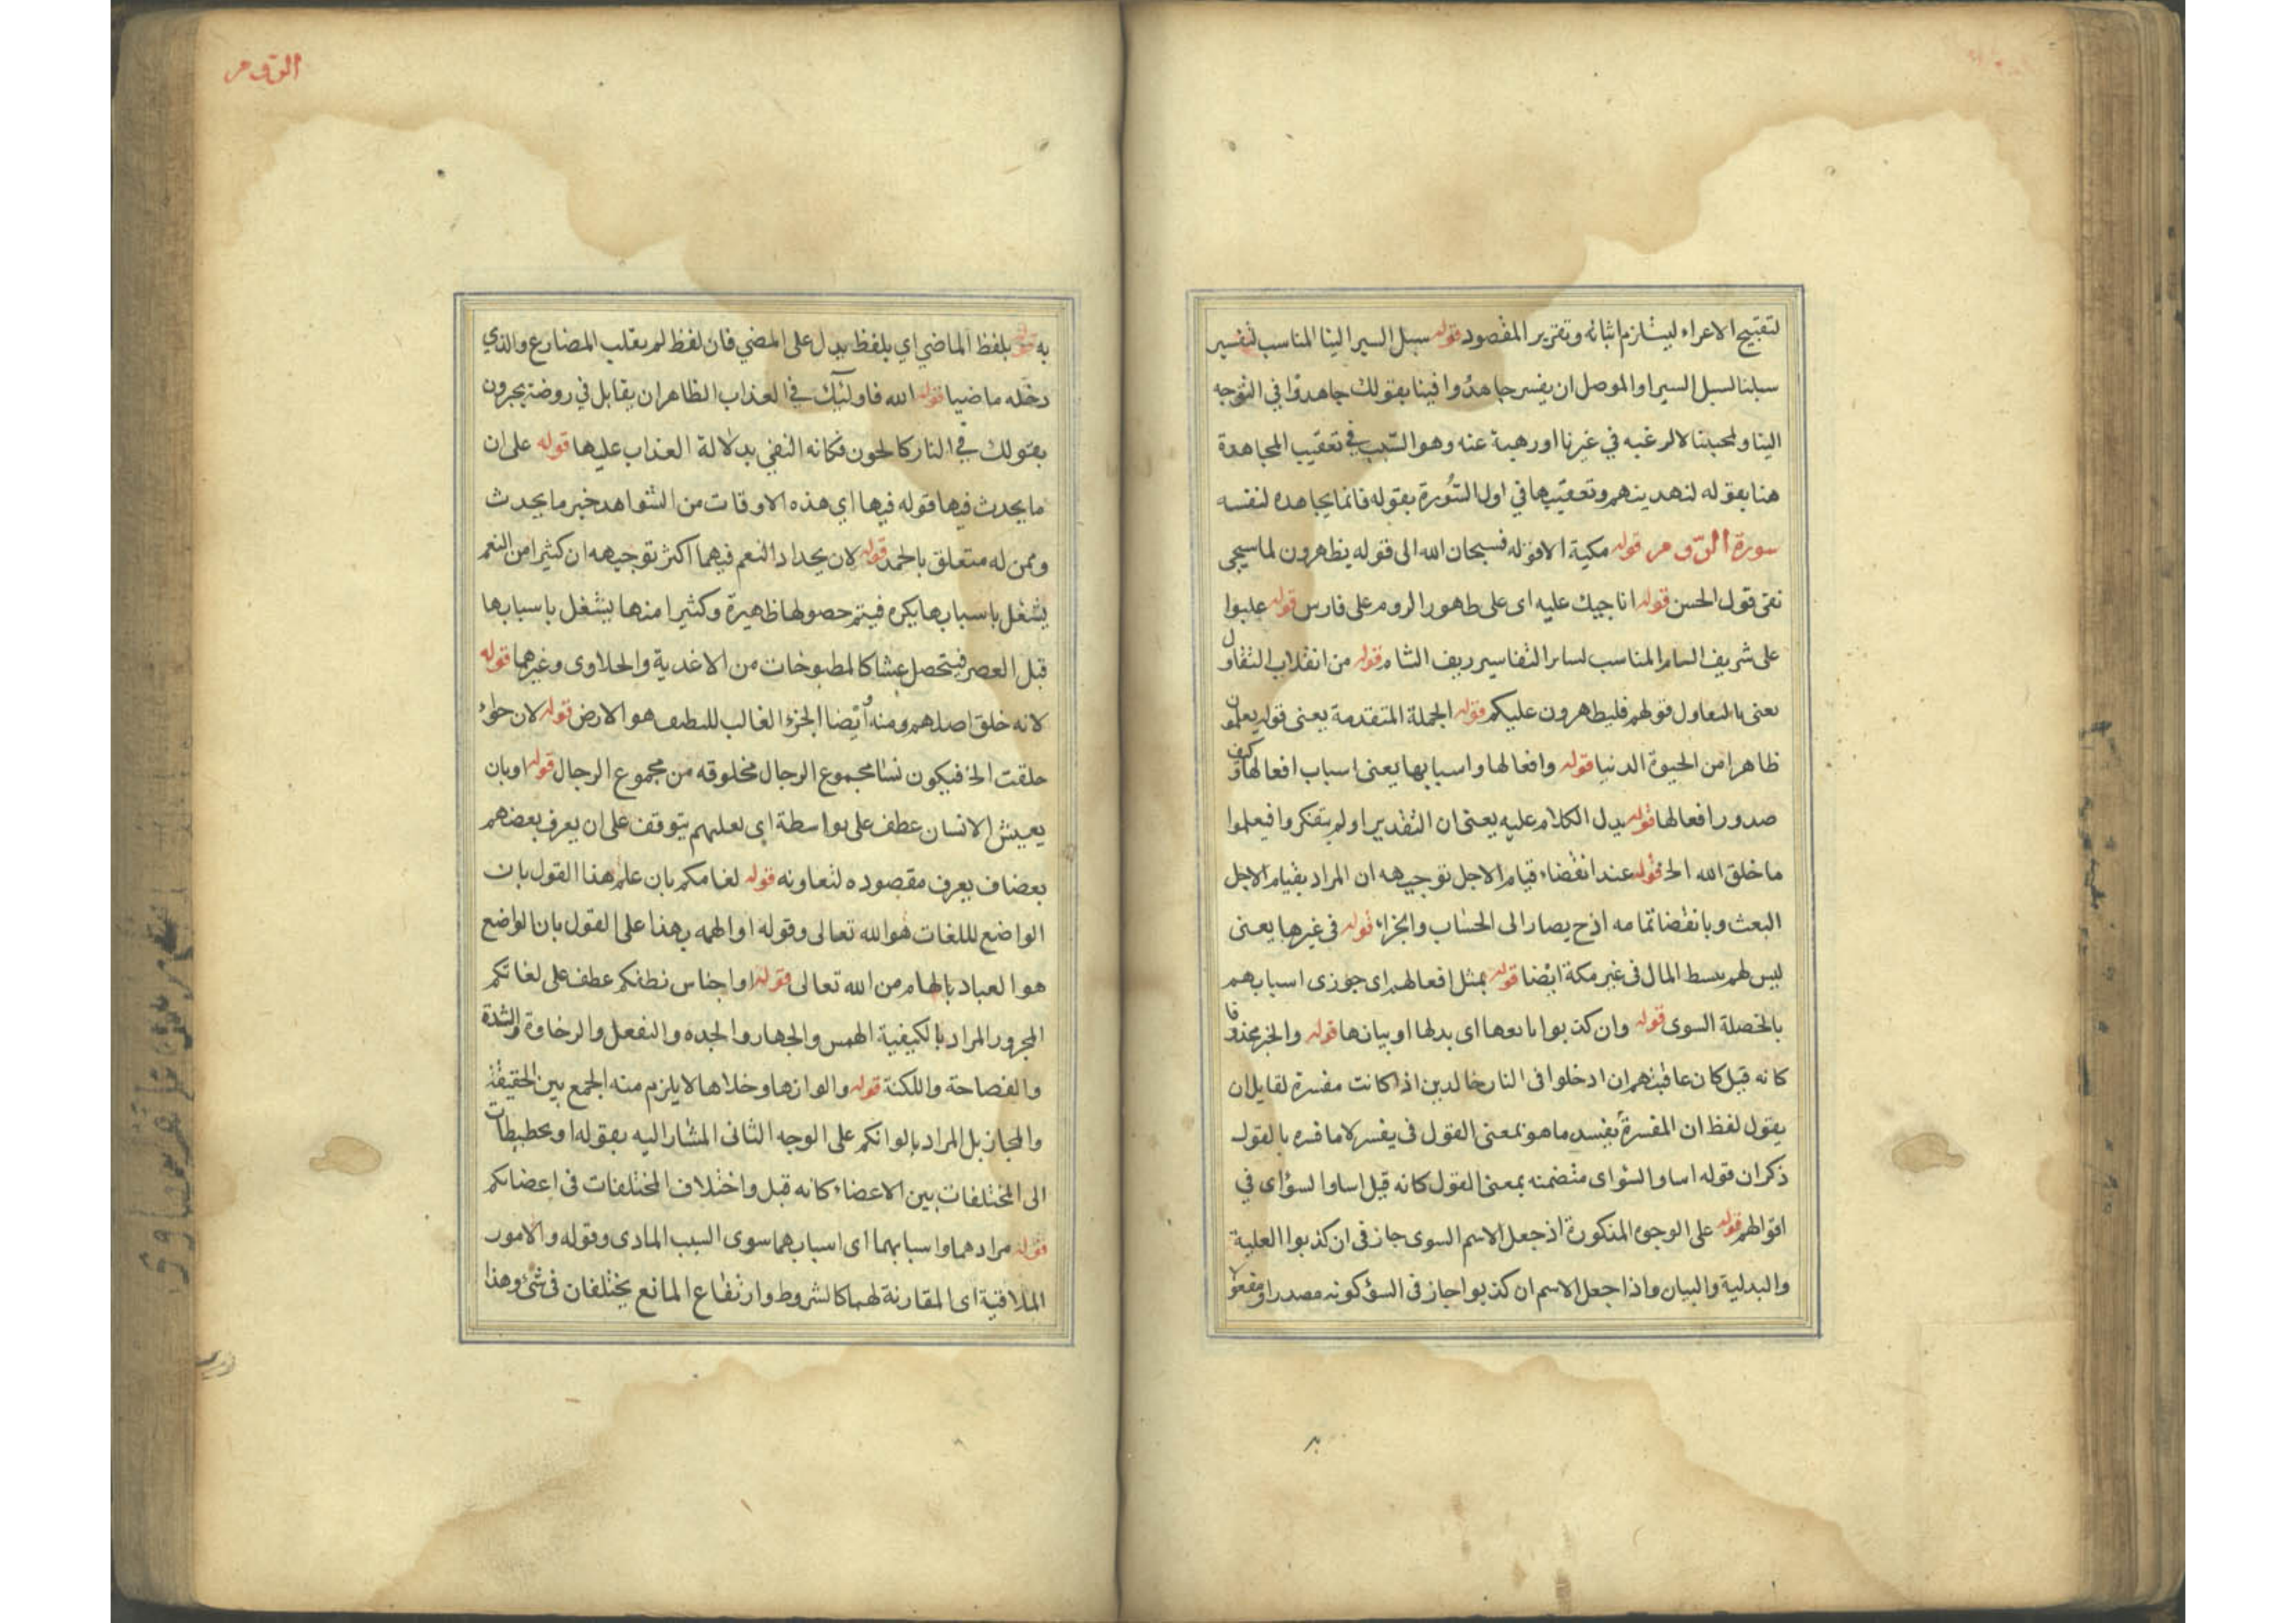 لتقبيح الاعراء ليستلزم اثباته وتقرير المقصود قوله سبل السير الينا المناسب لتفسير
سبلنا السبل السير او الموصل ان يفسر جاهدوا فينا بقولك جاهدوا في التوجه
الينا ولمحبتنا لا لرغبه في غيرنا او رهبة عنه وهو السبب في تعقيب المجاهدة
هنا بقوله لنهدينهم وتعقيبها في اول السورة بقوله فانما يجاهده لنفسه
سورة الروم قوله مكية الا قوله فسبحان الله الى قوله يظهرون لما سيجى
نقى قول الحسن قوله اناجيك عليه اى على ظهور الروم على فارس قوله غلبوا
على شريف المناسب لساير التفاسير ريف الشام قوله من انقلاب التفاول
يعنى بالتفاول قولهم فليظهرون عليكم قوله الجملة المتقدمة يعنى قوله يعلمون
ظاهرا من الحيوة الدنيا قوله وافعالها واسبابها يعنى اسباب افعالها وكيف
صدور افعالها قوله يدل الكلام عليه يعنى ان التقدير اولم يتفكروا فيعلموا
ما خلق الله الخ قوله عند انقضاء قيام الاجل توجيهه ان المراد بقيام الاجل
البعث وبانقضا تمامه اذ ح يصار الى الحساب والجزاء قوله فى غيرها يعنى
ليس لهم بسط المال فى غير مكة ايضا قوله بمثل افعالهم اى جوزى اسبابهم
بالخصلة السوى قوله وان كذبوا تابعها اى بدلها او بيانها قوله والخبر محذوفا
كانه قيل كان عاقبتهم ان ادخلوا فى النار خالدين اذا كانت مفسرة لقايل ان
يقول لفظ ان المفسرة يفسد ما هو بمعنى القول فى يفسر لا ما فسره بالقول
ذكر ان قوله اساوا السؤاى متضمنه بمعنى القول كانه قيل اساوا السؤاى في
اقوالهم قوله على الوجوه المذكورة اذ جعل الاسم السوى جاز فى ان كذبوا العلية
والبدلية والبيان واذا جعل الاسم ان كذبوا جاز فى السؤ كونه مصدرا ومفعولا
الروم
به قوله بلفظ الماضي اي بلفظ يدل على المضي فان لفظ لم يقلب المضارع والذي
دخله ماضيا قوله الله فاولئك في العذاب الظاهر ان يقابل في روضة يحبرون
بقولك في النار كالحون فكانه النفى بدلالة العذاب عليها قوله على ان
ما يحدث فيها قوله فيها اي هذه الاوقات من الشواهد خبر ما يحدث
وممن له متعلق بالحمد قوله لان يجداد النعم فيهما اكثر توجيهه ان كثيرا من النعم
يشغل باسبابها بكره فيتم حصولها ظهيرة وكثيرا منها يشغل باسبابها
قبل العصر فيتحصل عشا كالمطبوخات من الاغدية والحلاوى وغيرهما قوله
لانه خلق اصلهم ومنه ايضا الجزء الغالب للنطف هو الارض قوله لان حواء
خلقت الخ فيكون نسا مجموع الرجال مخلوقه من مجموع الرجال قوله او بان
يعيش الانسان عطف على بواسطة اى لعلهم يتوقف على ان يعرف بعضهم
بعضا ف يعرف مقصوده لتعاونه قوله لغامكم بان علم هذا القول بان
الواضع لللغات هو الله تعالى وقوله او الهمه بهذا على القول بان الواضع
هو العباد بالهام من الله تعالى قوله او اجناس نطفكم عطف على لغاتكم
المجرور المراد بالكيفية الهمس والجهار والحده والنفعل والرخاوة والشدة
والفصاحة واللكنة قوله والوانها وخلاها لا يلزم منه الجمع بين الحقيقة
والمجاز بل المراد بالوانكم على الوجه الثانى المشار اليه بقوله او تخطيطات
الى المختلفات بين الاعضاء كانه قيل واختلاف المختلفات فى اعضائكم
قوله مرادهما واسبابهما اى اسبابهما سوى السبب المادى وقوله والامور
الملاقية اى المقارنة لهما كالشروط وارتفاع المانع يختلفان فى شئ وهذا